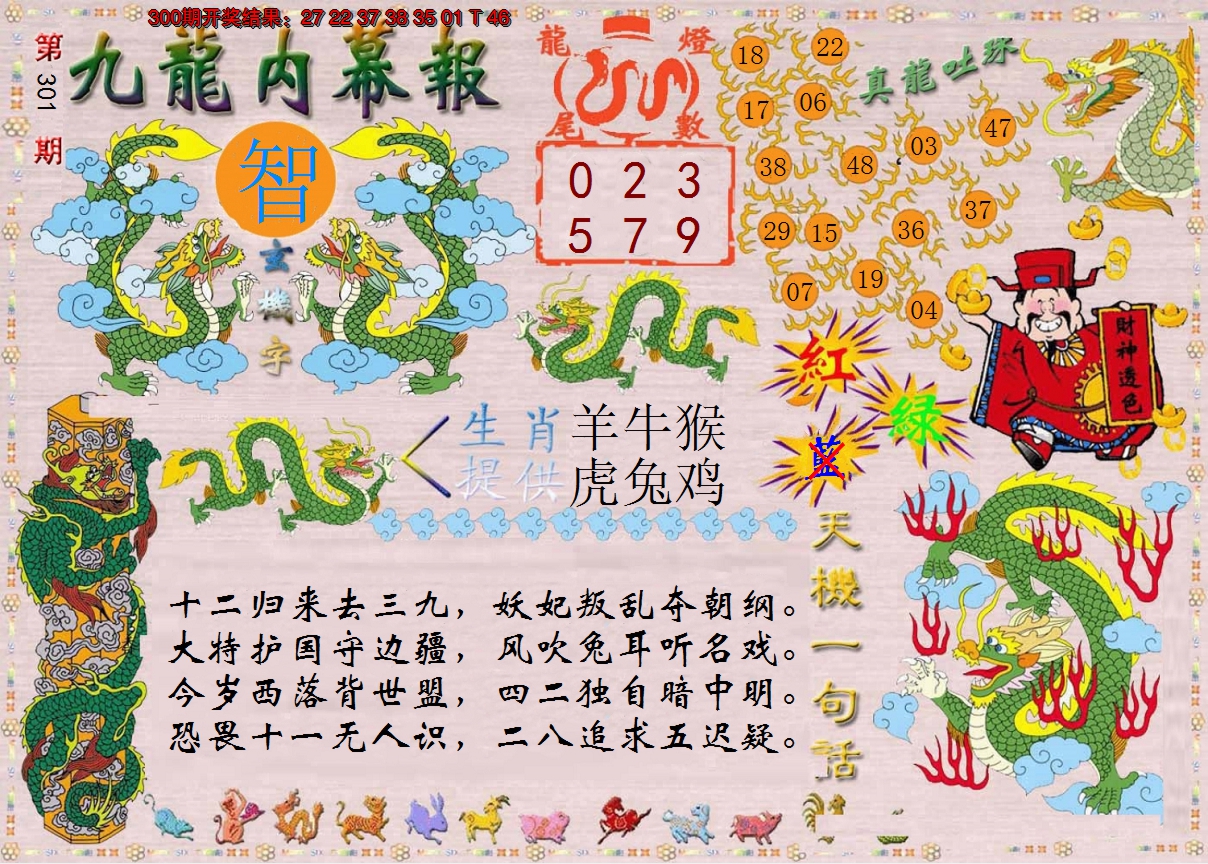 300期开奖结果：27 22 37 38 35 01 T 46
第301期
九龍内幕報
智
玄機字
龍燈
尾數
0 2 3
5 7 9
真龍吐珠
18 22
17 06
38 48 03 47
29 15 36 37
07 19 04
紅
綠
藍
財神透色
生肖 羊牛猴
提供 虎兔鸡
十二归来去三九，妖妃叛乱夺朝纲。
大特护国守边疆，风吹兔耳听名戏。
今岁西落背世盟，四二独自暗中明。
恐畏十一无人识，二八追求五迟疑。
天機一句話